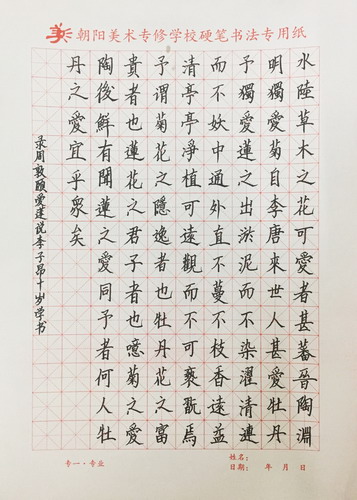 朝阳美术专修学校硬笔书法专用纸
水陸草木之花可愛者甚蕃晉陶淵
明獨愛菊自李唐來世人甚愛牡丹
予獨愛蓮之出淤泥而不染濯清漣
而不妖中通外直不蔓不枝香遠益
清亭亭淨植可遠觀而不可褻翫焉
予謂菊花之隱逸者也牡丹花之富
貴者也蓮花之君子者也噫菊之愛
陶後鮮有聞蓮之愛同予者何人牡
丹之愛宜乎衆矣
录周敦颐爱莲说李子昂十岁学书
专一·专业
姓名：
日期： 年 月 日